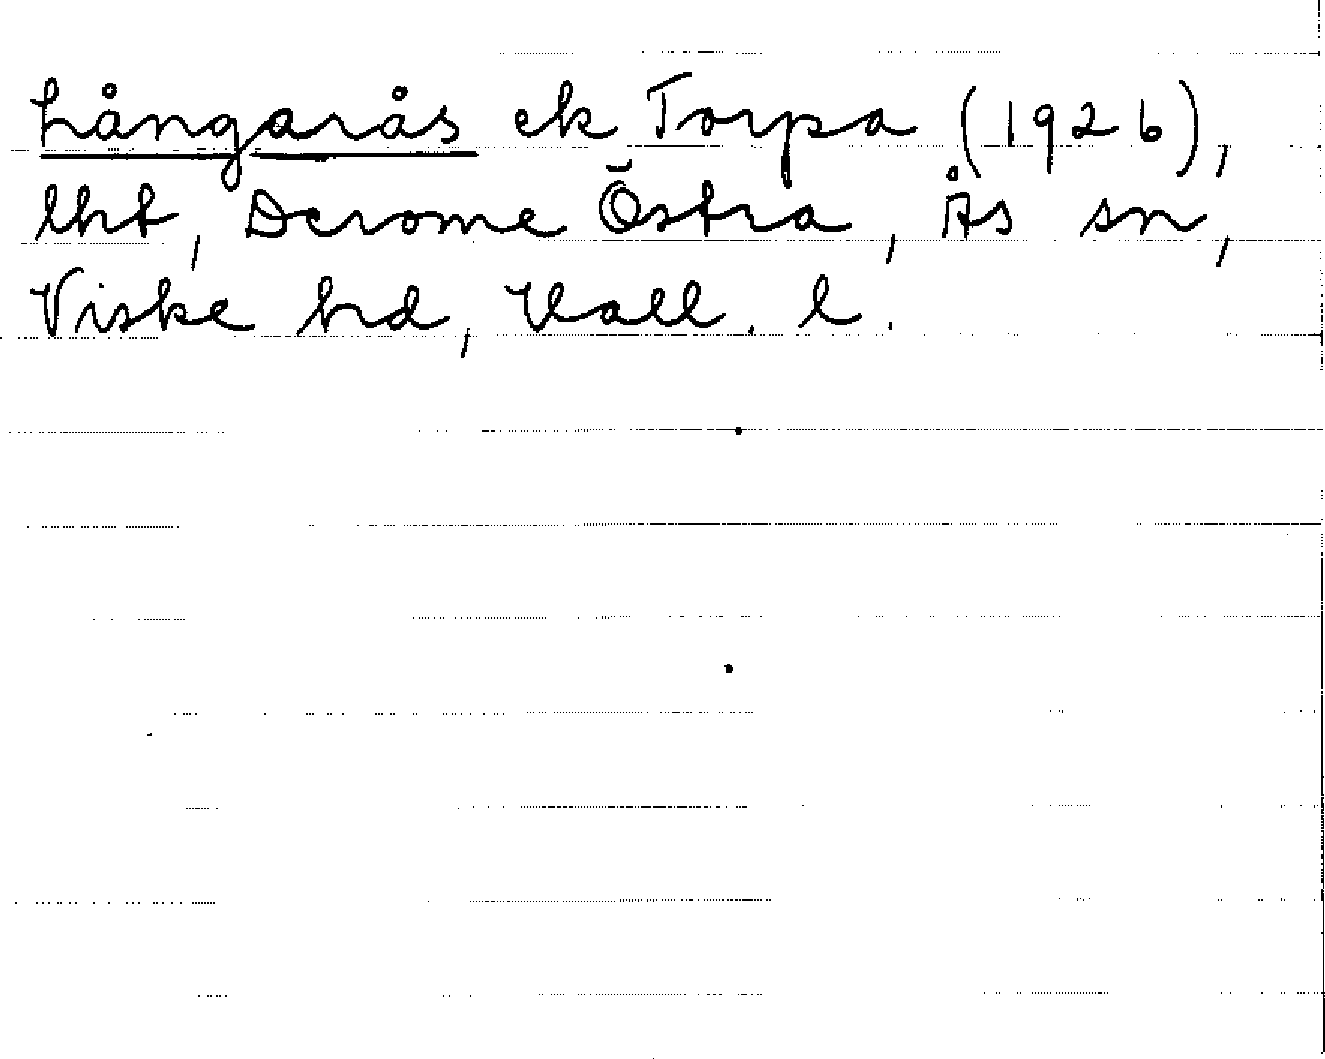 Långarås ek Torpa (1926),
lht, Derome Östra, Ås sn,
Viske hd, Hall. l.